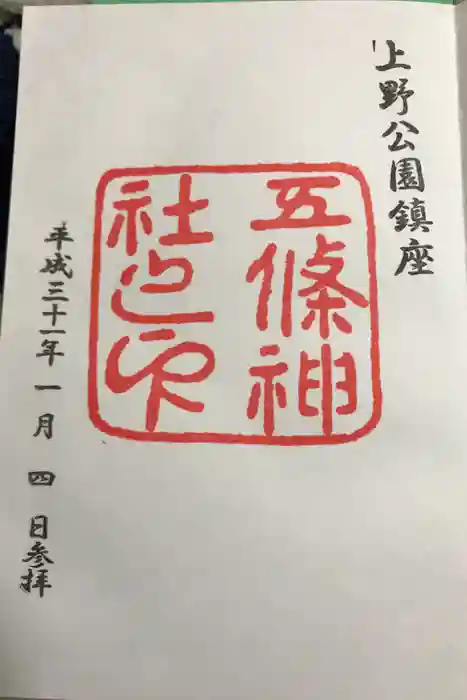 上野公園鎮座
五條神
社之印
平成三十一年一月四日参拝